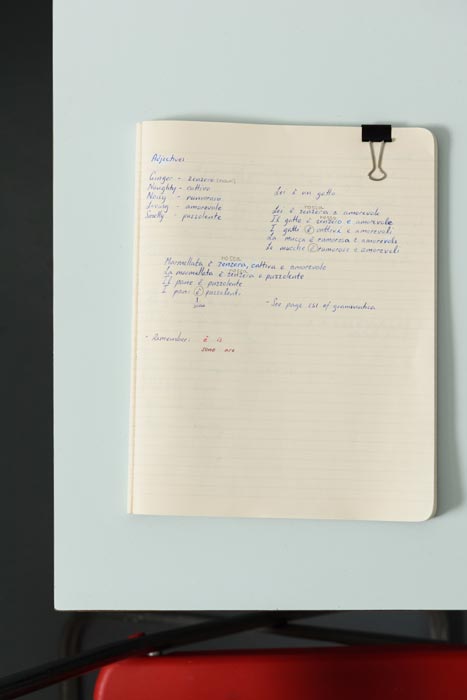 Adjectives
Ginger - zenzero (noun)
Naughty - cattivo
Noisy - rumoroso
Loving - amorevole
Smelly - puzzolente
Lei è un gatto
rossa
Lei è zenzera e amorevole
rosso
Il gatto è zenzero e amorevole
I gatti è cattiva e amorevoli
La mucca è ramorosa e amorevole
Le mucche è ramorose e amorevoli
rossa
Marmellata è zenzera, cattiva e amorevole
rossa
La marmellata è zenzera e puzzolente
Il pane è puzzolente
I pani è puzzolenti
sono
- See page of grammatica
- Remember: è is
sono are